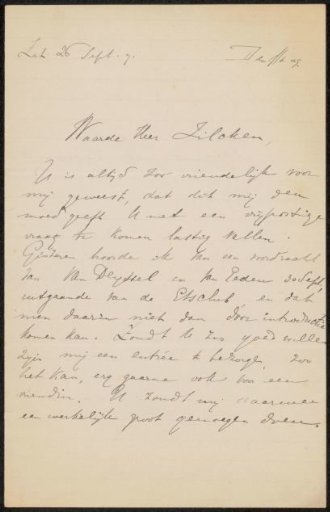 Zat. 26 Sept. 7.
Waarde Heer Zilcken,
U is altijd zoo vriendelijk voor
mij geweest, dat dit mij den
moed geeft U met een vrijpostige
vraag te komen lastig vallen.
Gisteren hoorde ik van een voordracht
van Van Deyssel en Van Eeden 30 Sept,
uitgaande van de Etsclub, en dat
men daarin niet dan door introductie
komen kan. Zoudt U zoo goed willen
zijn mij een entrée te bezorgen, zoo
het kan, erg gaarne ook voor een
vriendin. U zoudt mij daarmee
een werkelijk groot genoegen doen.